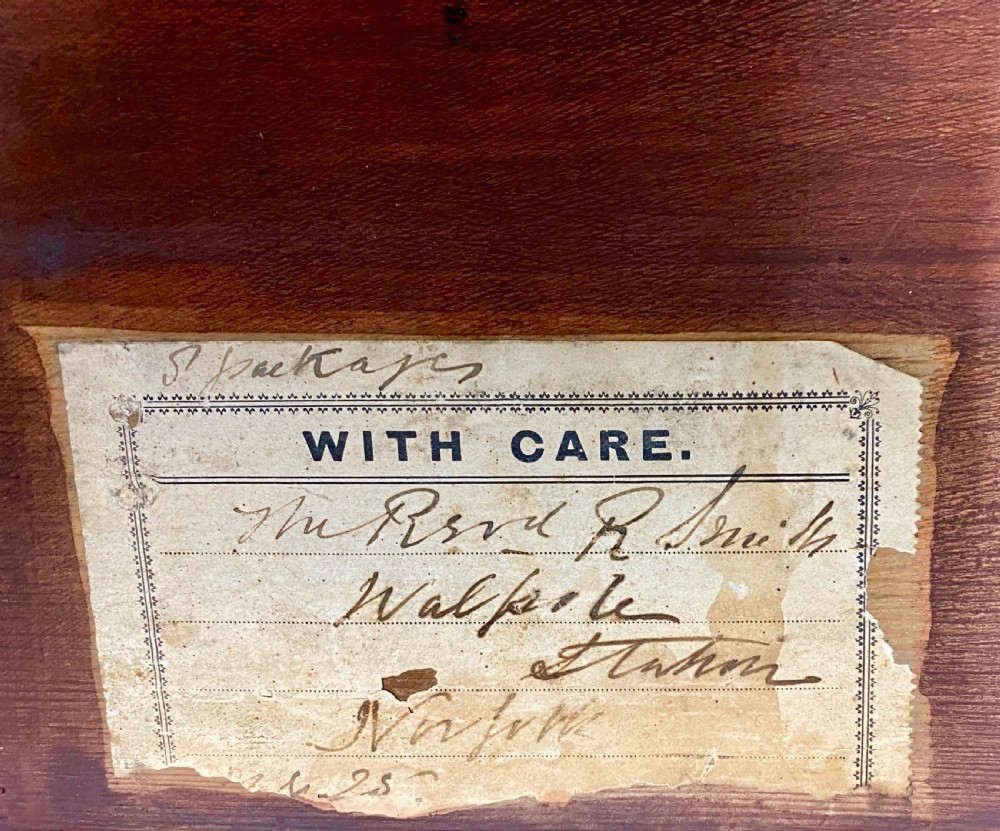 packages
WITH CARE.
The Revd R Smith
Walpole
Station
Norfolk
25